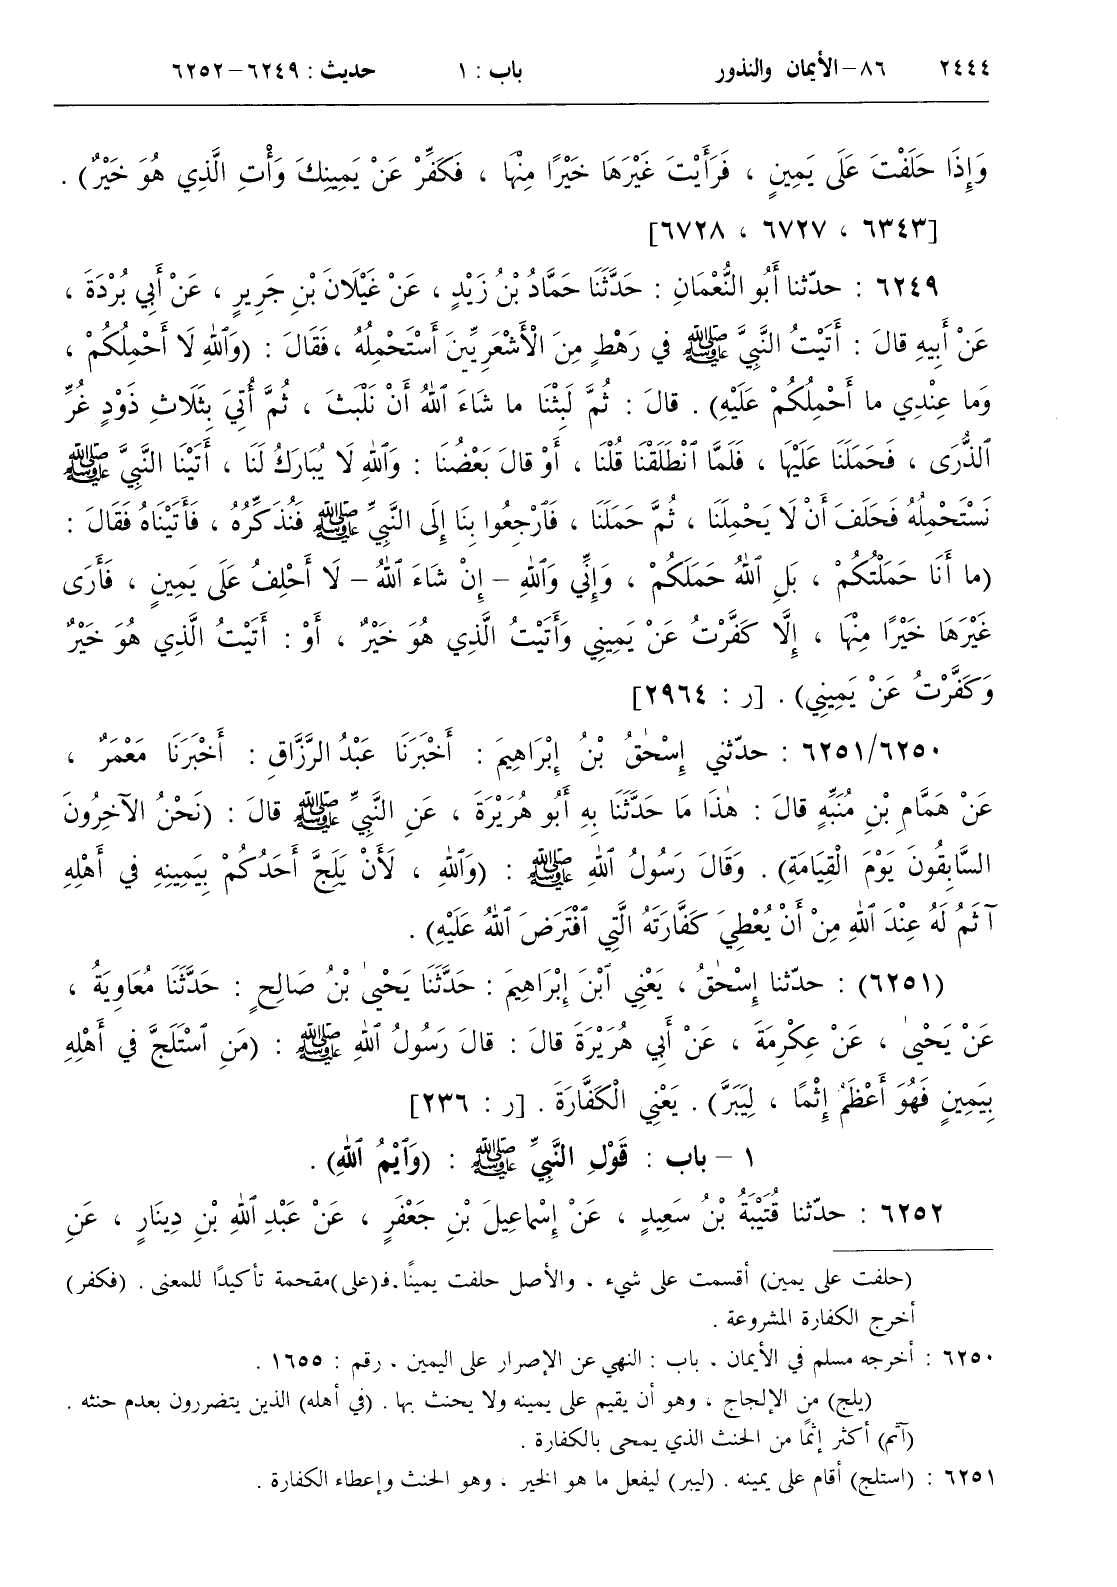 ٢٤٤٤ ٨٦-الأيمان والنذور باب : ١ حديث : ٦٢٤٩-٦٢٥٢
وَإِذَا حَلَفْتَ عَلَى يَمِينٍ ، فَرَأَيْتَ غَيْرَهَا خَيْرًا مِنْهَا ، فَكَفِّرْ عَنْ يَمِينِكَ وَأْتِ الَّذِي هُوَ خَيْرٌ) .
[٦٣٤٣ ، ٦٧٢٧ ، ٦٧٢٨]
٦٢٤٩ : حدّثنا أَبُو النُّعْمَانِ : حَدَّثَنَا حَمَّادُ بْنُ زَيْدٍ ، عَنْ غَيْلَانَ بْنِ جَرِيرٍ ، عَنْ أَبِي بُرْدَةَ ،
عَنْ أَبِيهِ قالَ : أَتَيْتُ النَّبِيَّ ﷺ في رَهْطٍ مِنَ الْأَشْعَرِيِّينَ أَسْتَحْمِلُهُ ، فَقَالَ : (وَٱللهِ لَا أَحْمِلُكُمْ ،
وَما عِنْدِي ما أَحْمِلُكُمْ عَلَيْهِ) . قالَ : ثُمَّ لَبِثْنَا ما شَاءَ ٱللهُ أَنْ نَلْبَثَ ، ثُمَّ أُتِيَ بِثَلَاثِ ذَوْدٍ غُرِّ
ٱلذُّرَى ، فَحَمَلَنَا عَلَيْهَا ، فَلَمَّا ٱنْطَلَقْنَا قُلْنَا ، أَوْ قالَ بَعْضُنَا : وَٱللهِ لَا يُبَارَكُ لَنَا ، أَتَيْنَا النَّبِيَّ ﷺ
نَسْتَحْمِلُهُ فَحَلَفَ أَنْ لَا يَحْمِلَنَا ، ثُمَّ حَمَلَنَا ، فَٱرْجِعُوا بِنَا إِلَى النَّبِيِّ ﷺ فَنُذَكِّرُهُ ، فَأَتَيْنَاهُ فَقَالَ :
(ما أَنَا حَمَلْتُكُمْ ، بَلِ ٱللهُ حَمَلَكُمْ ، وَإِنِّي وَٱللهِ - إِنْ شَاءَ ٱللهُ - لَا أَحْلِفُ عَلَى يَمِينٍ ، فَأَرَى
غَيْرَهَا خَيْرًا مِنْهَا ، إِلَّا كَفَّرْتُ عَنْ يَمِينِي وَأَتَيْتُ الَّذِي هُوَ خَيْرٌ ، أَوْ : أَتَيْتُ الَّذِي هُوَ خَيْرٌ
وَكَفَّرْتُ عَنْ يَمِينِي) . [ر : ٢٩٦٤]
٦٢٥١/٦٢٥٠ : حدّثني إِسْحٰقُ بْنُ إِبْرَاهِيمَ : أَخْبَرَنَا عَبْدُ الرَّزَّاقِ : أَخْبَرَنَا مَعْمَرٌ ،
عَنْ هَمَّامِ بْنِ مُنَبِّهٍ قالَ : هٰذَا مَا حَدَّثَنَا بِهِ أَبُو هُرَيْرَةَ ، عَنِ النَّبِيِّ ﷺ قالَ : (نَحْنُ الآخِرُونَ
السَّابِقُونَ يَوْمَ الْقِيَامَةِ) . وَقَالَ رَسُولُ ٱللهِ ﷺ : (وَٱللهِ ، لَأَنْ يَلَجَّ أَحَدُكُمْ بِيَمِينِهِ في أَهْلِهِ
آثَمُ لَهُ عِنْدَ ٱللهِ مِنْ أَنْ يُعْطِيَ كَفَّارَتَهُ الَّتِي ٱفْتَرَضَ ٱللهُ عَلَيْهِ) .
(٦٢٥١) : حدّثنا إِسْحٰقُ ، يَعْنِي ٱبْنَ إِبْرَاهِيمَ : حَدَّثَنَا يَحْيىٰ بْنُ صَالِحٍ : حَدَّثَنَا مُعَاوِيَةُ ،
عَنْ يَحْيىٰ ، عَنْ عِكْرِمَةَ ، عَنْ أَبِي هُرَيْرَةَ قالَ : قالَ رَسُولُ ٱللهِ ﷺ : (مَنِ ٱسْتَلَجَّ في أَهْلِهِ
بِيَمِينٍ فَهُوَ أَعْظَمُ إِثْمًا ، لِيَبَرَّ) . يَعْنِي الْكَفَّارَةَ . [ر : ٢٣٦]
١ - باب : قَوْلِ النَّبِيِّ ﷺ : (وَٱيْمُ ٱللهِ) .
٦٢٥٢ : حدّثنا قُتَيْبَةُ بْنُ سَعِيدٍ ، عَنْ إِسْمَاعِيلَ بْنِ جَعْفَرٍ ، عَنْ عَبْدِ ٱللهِ بْنِ دِينَارٍ ، عَنِ
(حلفت على يمين) أقسمت على شيء ، والأصل حلفت يمينًا.فـ(على)مقحمة تأكيدًا للمعنى . (فكفر)
أخرج الكفارة المشروعة .
٦٢٥٠ : أخرجه مسلم في الأيمان ، باب : النهي عن الإصرار على اليمين ، رقم : ١٦٥٥ .
(يلج) من الإلجاج ، وهو أن يقيم على يمينه ولا يحنث بها . (في أهله) الذين يتضررون بعدم حنثه .
(آثم) أكثر إثمًا من الحنث الذي يمحى بالكفارة .
٦٢٥١ : (استلج) أقام على يمينه . (ليبر) ليفعل ما هو الخير ، وهو الحنث وإعطاء الكفارة .